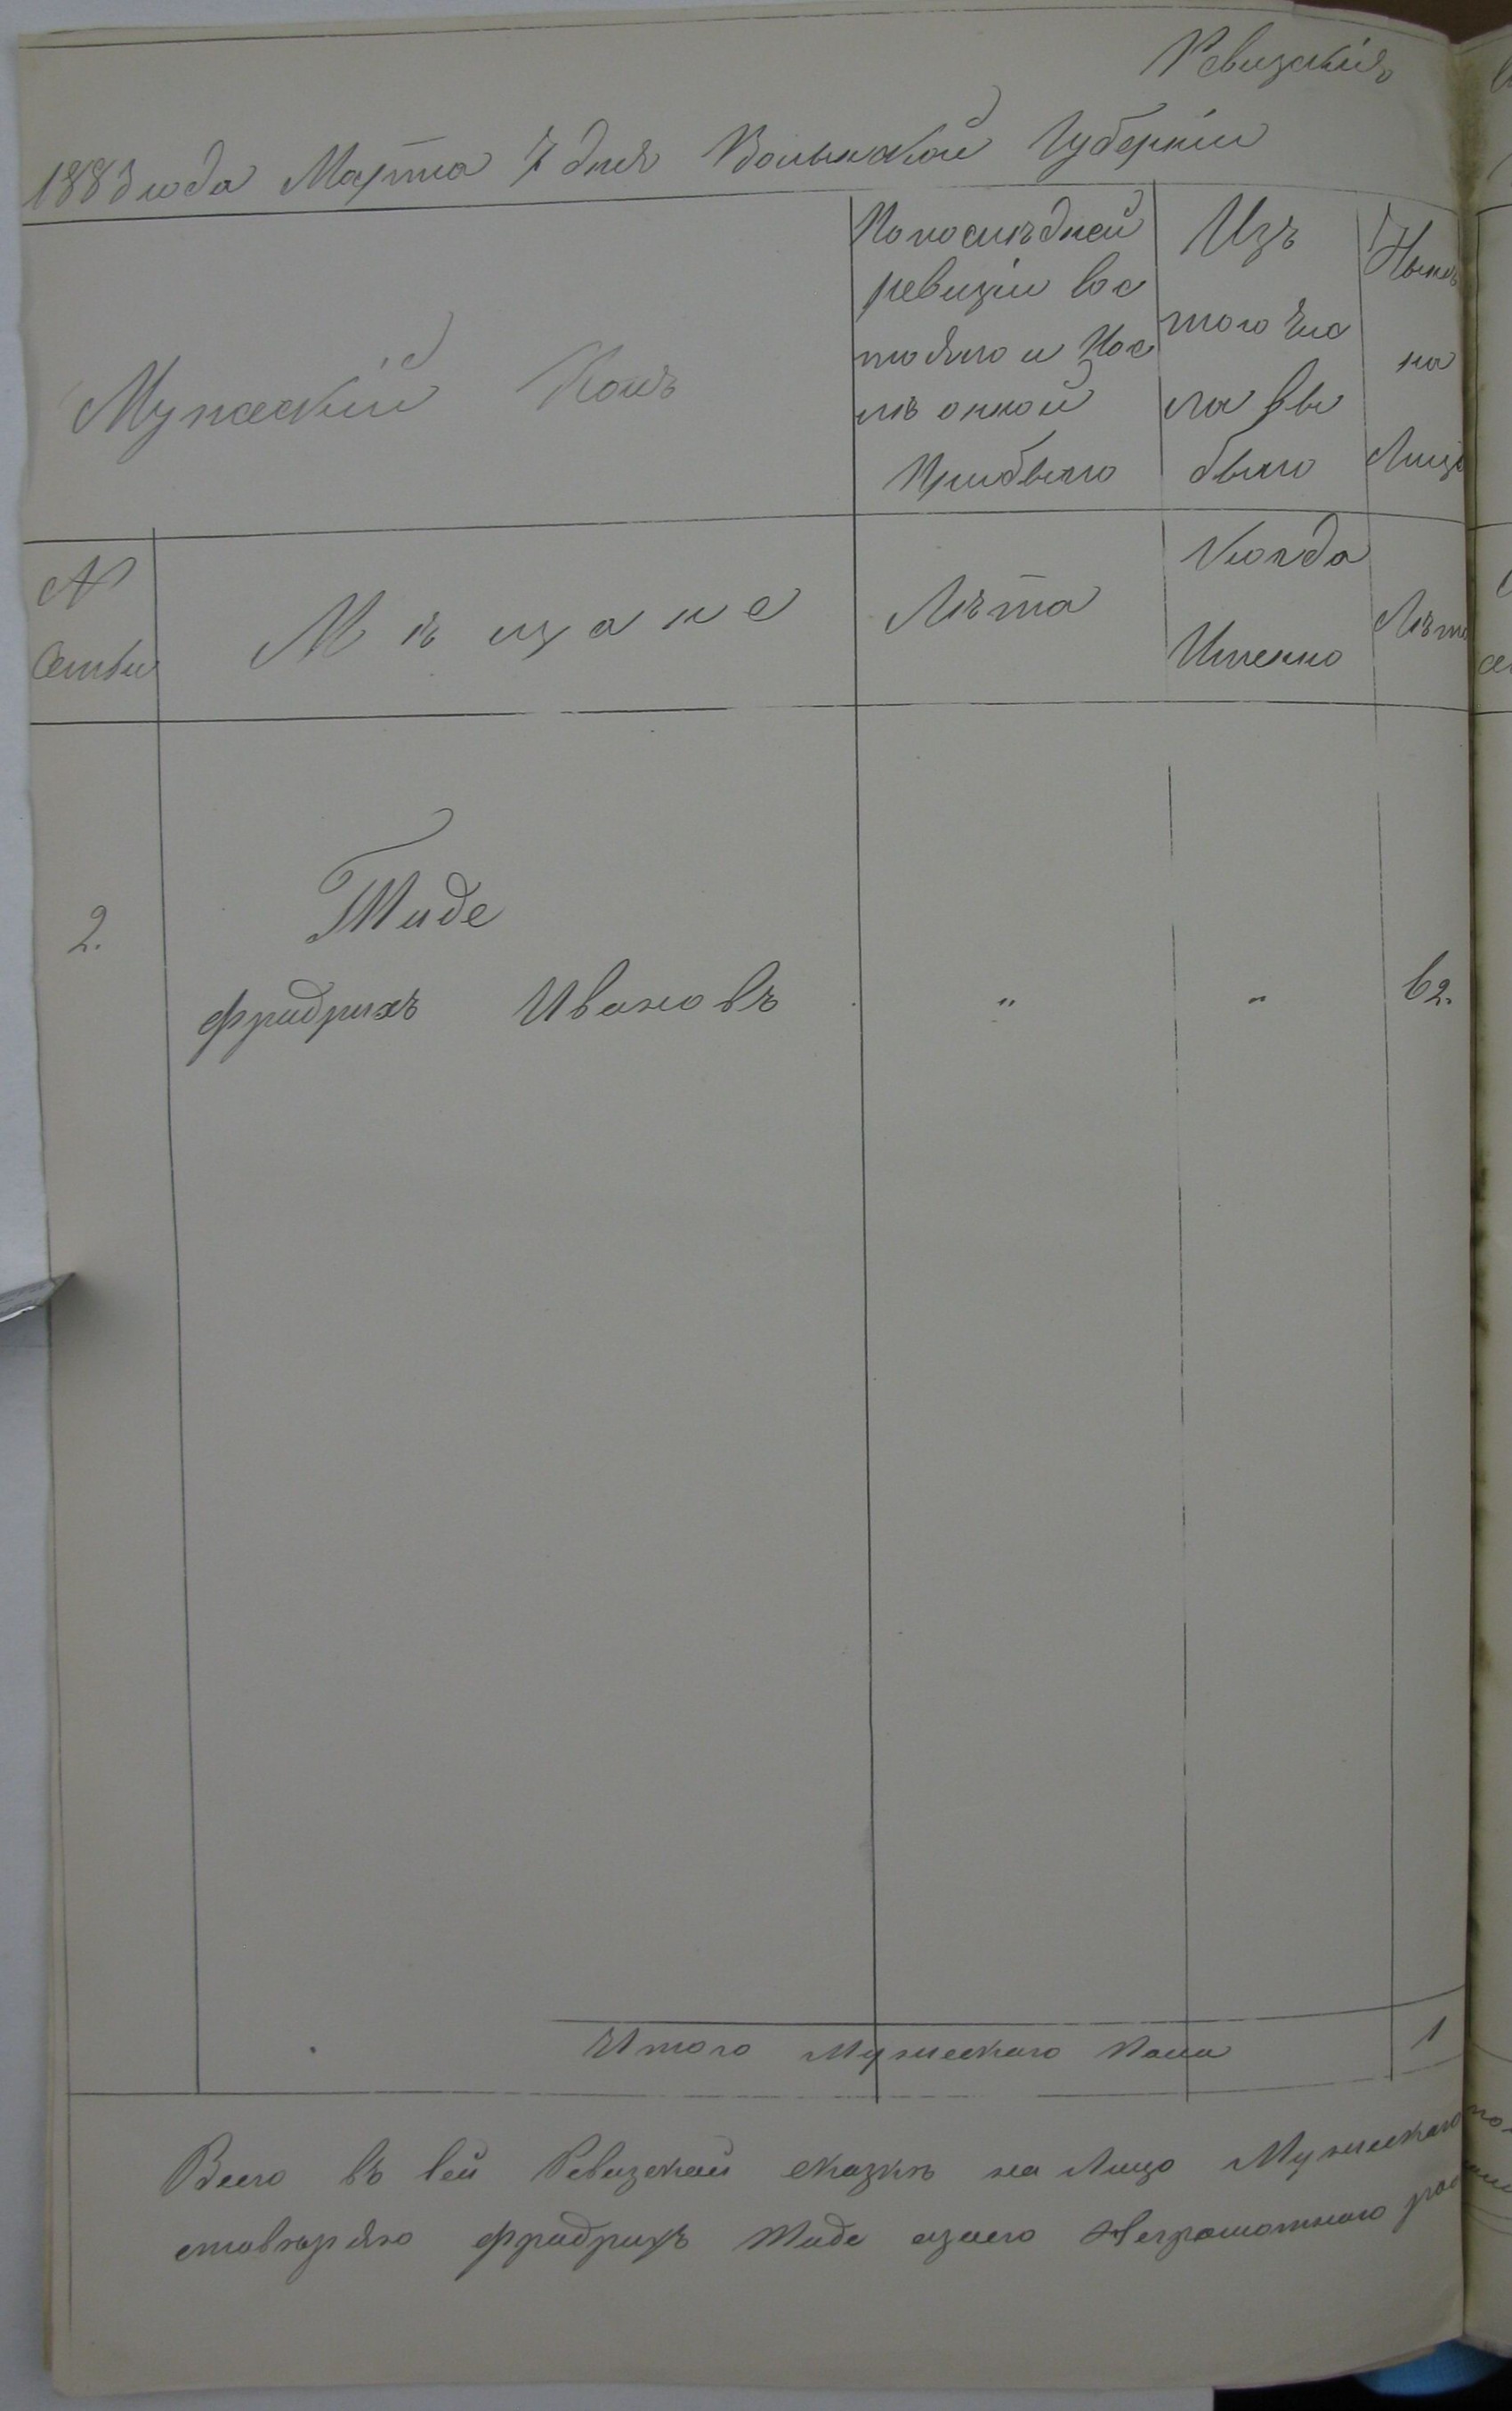 Ревизскія
1883 года Марта 7 дня Волынской Губерніи
Мужескій Полъ
По послѣдней
ревизіи сос
тояло и Пос
лѣ онной
Прибыло
Изъ
того Чис
ла вы
было
Нынѣ
на
Лицо
№
Семьи
Мѣщане
Лѣта
Когда
Именно
Лѣта
2.
Тиде
Фридрихъ Ивановъ " " 62.
Итого Мужескаго Пола 1
Всего въ сей Ревизской сказкѣ на Лицо Мужескаго
Фридрихъ Тиде Неграмотнаго